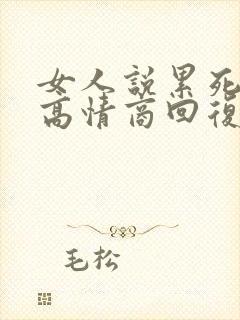 女人説累死
高情商回復
毛松